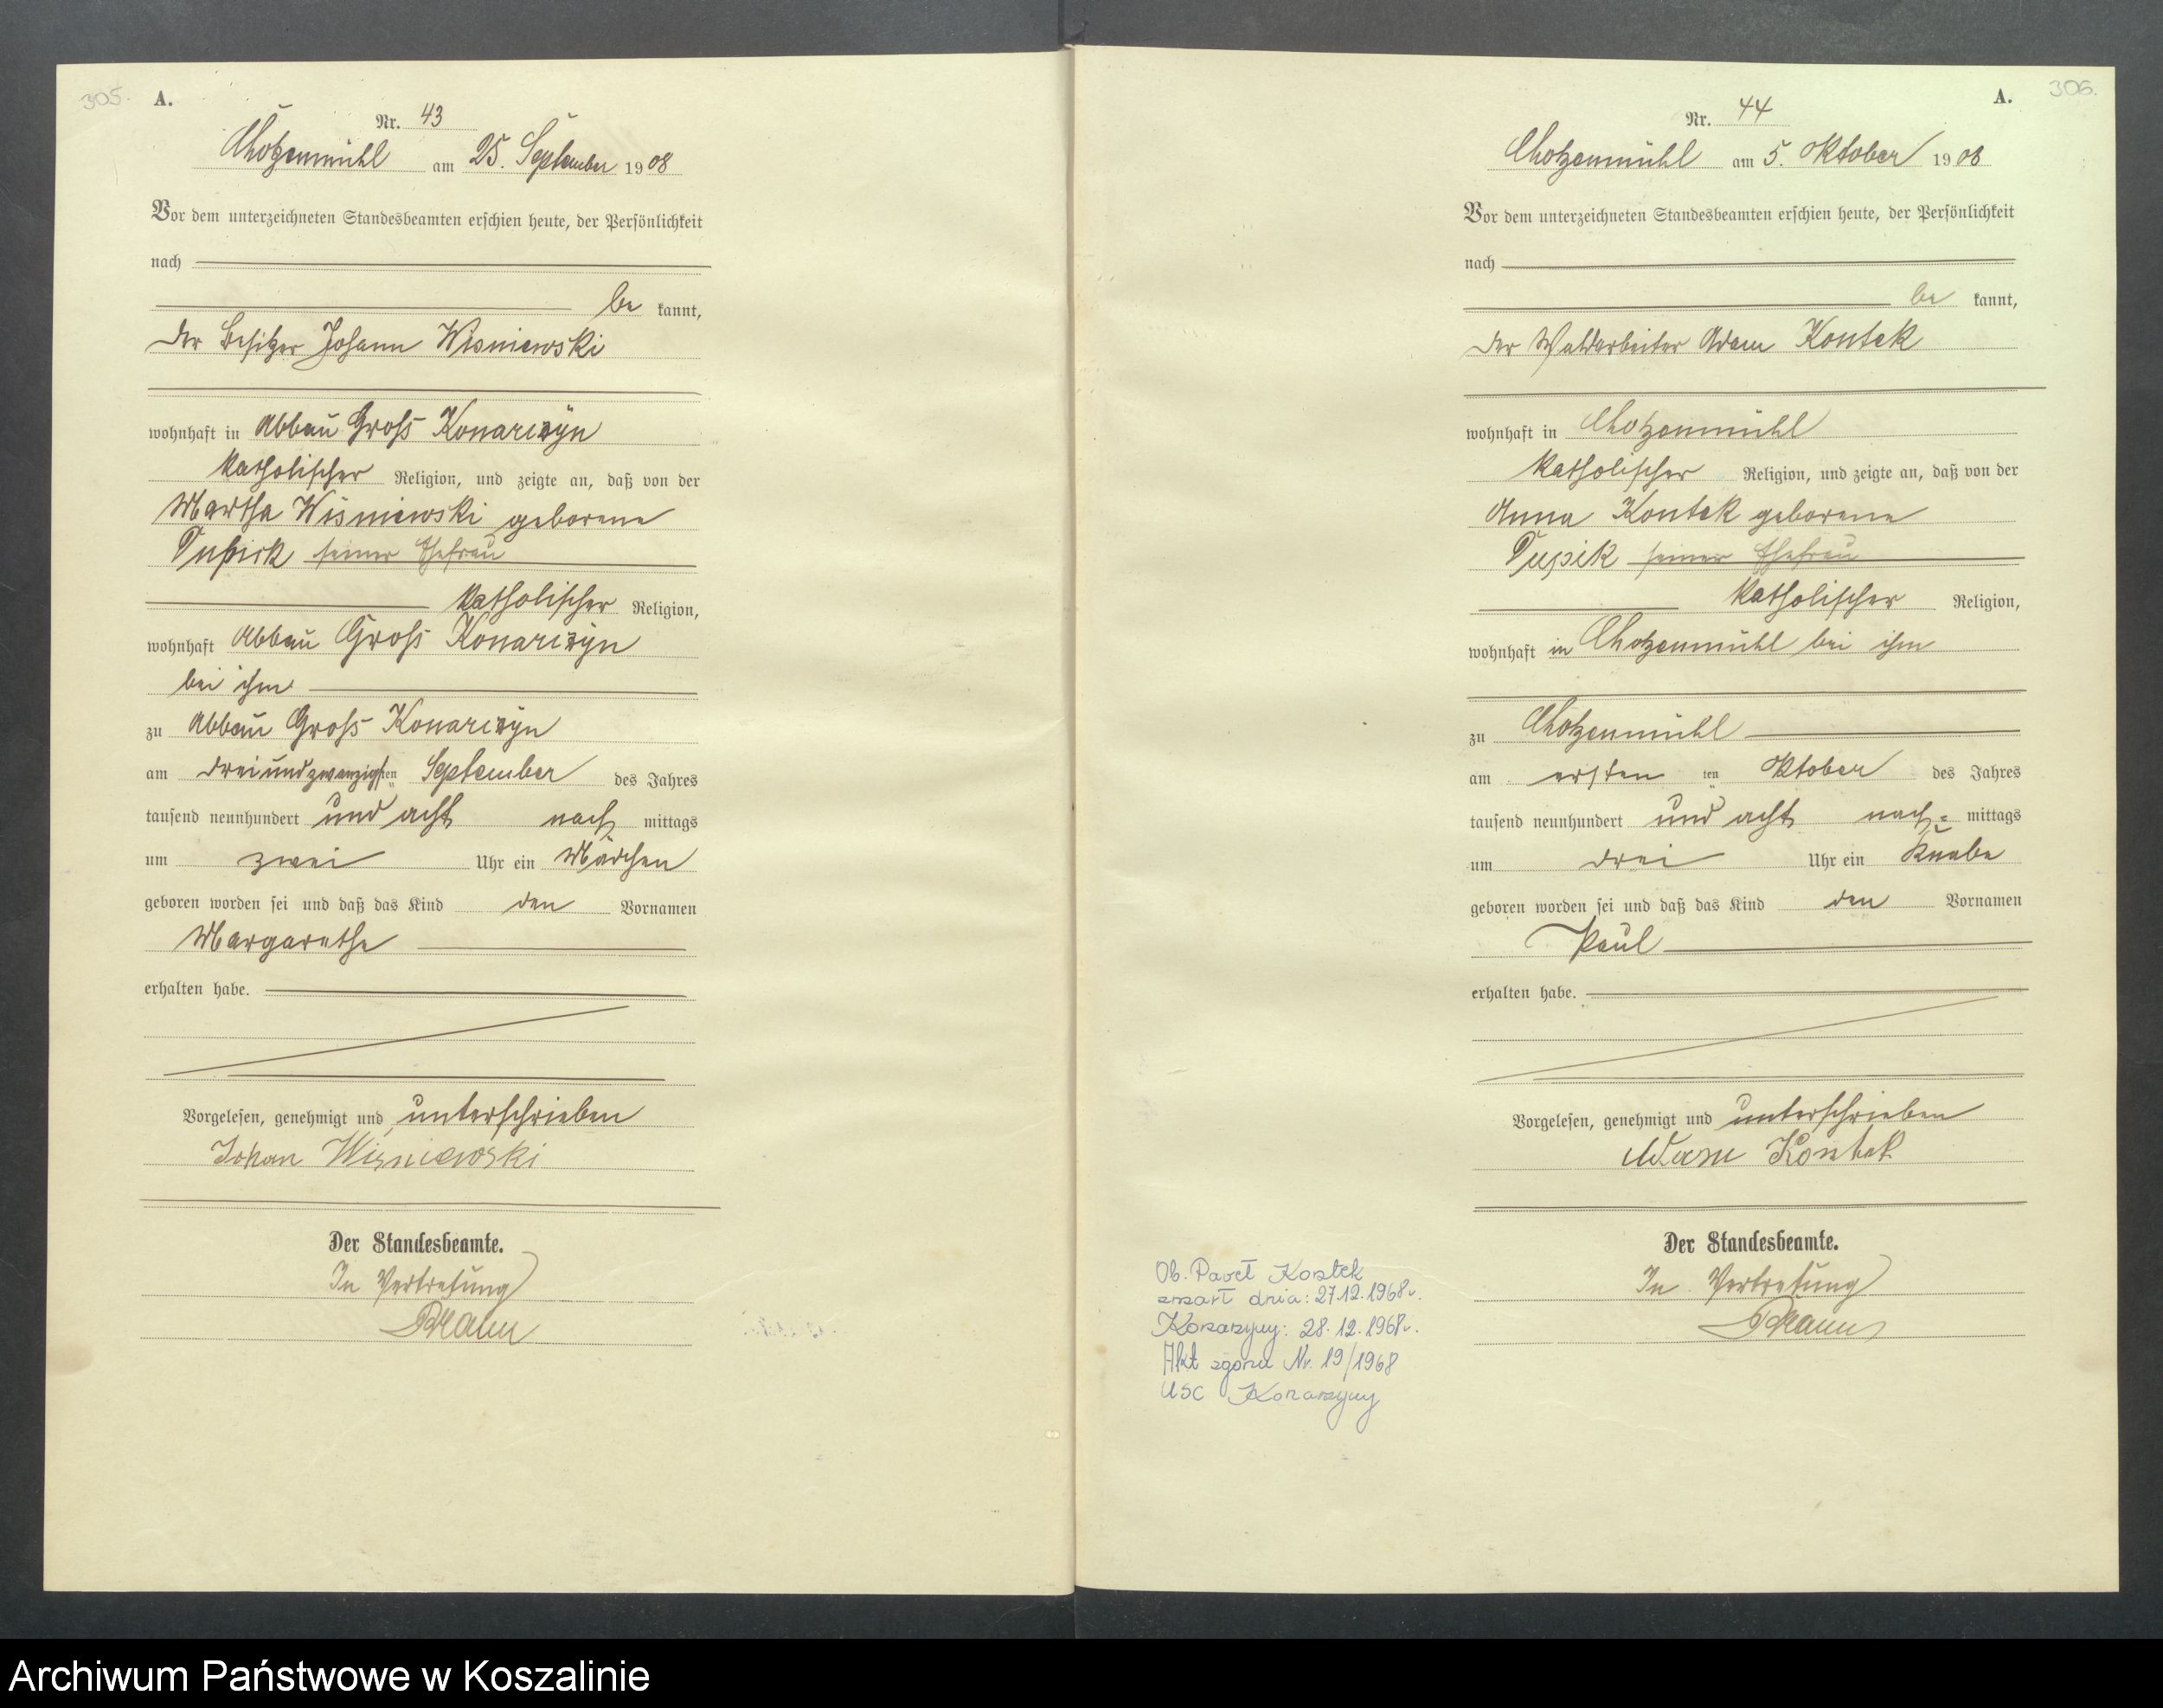 305.
A.
Nr. 43
Chotzenmühl am 25. September 1908
Vor dem unterzeichneten Standesbeamten erschien heute, der Persönlichkeit
nach
be kannt,
der Besitzer Johann Wisniewski
wohnhaft in Abbau Gross Konarczyn
katholischer Religion, und zeigte an, daß von der
Martha Wisniewski geborene
seiner Ehefrau
katholischer Religion,
wohnhaft Abbau Gross Konarczyn
bei ihm
zu Abbau Gross Konarczyn
am dreiundzwanzigsten September des Jahres
tausend neunhundert und acht nach mittags
um zwei Uhr ein Mädchen
geboren worden sei und daß das Kind den Vornamen
Margarethe
erhalten habe.
Vorgelesen, genehmigt und unterschrieben
Johan Wiśniewski
Der Standesbeamte.
In Vertretung
306.
A.
Nr. 44
Chotzenmühl am 5. Oktober 1908
Vor dem unterzeichneten Standesbeamten erschien heute, der Persönlichkeit
nach
be kannt,
der Waldarbeiter Adam Kontek
wohnhaft in Chotzenmühl
katholischer Religion, und zeigte an, daß von der
Anna Kontek geborene
Pupik seiner Ehefrau
katholischer Religion,
wohnhaft in Chotzenmühl bei ihm
zu Chotzenmühl
am ersten ten Oktober des Jahres
tausend neunhundert und acht nach= mittags
um drei Uhr ein Knabe
geboren worden sei und daß das Kind den Vornamen
Paul
erhalten habe.
Vorgelesen, genehmigt und unterschrieben
Adam Kontek
Der Standesbeamte.
In Vertretung
Ob. Paweł Kontek
zmarł dnia: 27.12.1968r.
Konarzyny: 28.12.1968r.
Akt zgonu Nr. 19/1968
USC Konarzyny
Archiwum Państwowe w Koszalinie